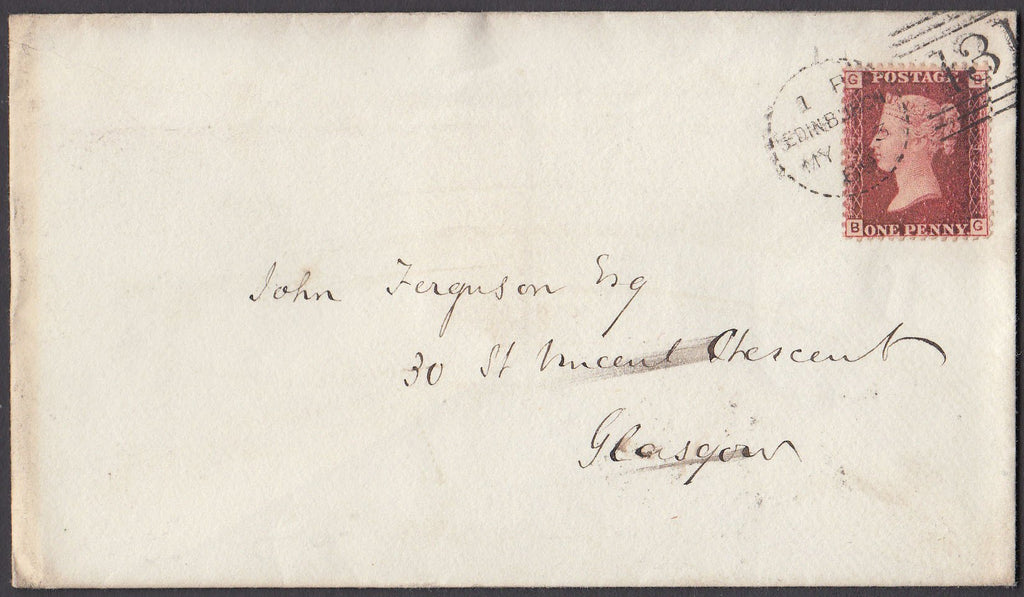 131
G POSTAGE
1 P
EDINBU
MY
B ONE PENNY G
John Ferguson Esq
30 St Vincent Crescent
Glasgow